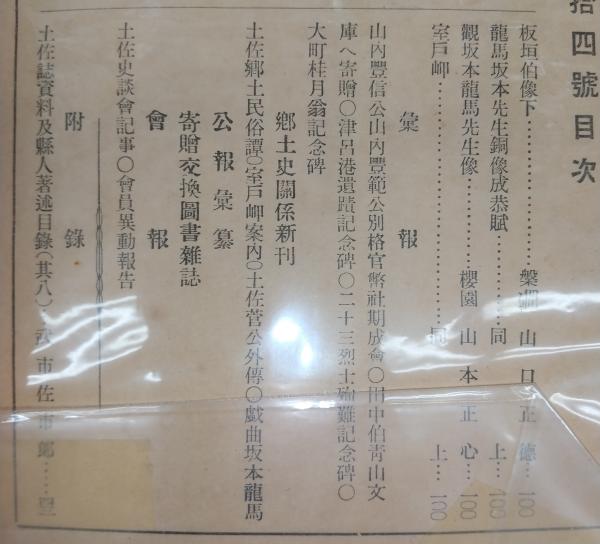 拾四號目次
板垣伯像下…………槃澗 山口正德…一〇〇
龍馬坂本先生銅像成恭賦………同 上…一〇〇
觀坂本龍馬先生像………櫻園 山本正心…一〇〇
室戶岬…………………同 上…一〇〇
彙報
山內豐信公山內豐範公別格官幣社期成會〇田中伯靑山文
庫へ寄贈〇津呂港遺蹟記念碑〇二十三烈士殉難記念碑〇
大町桂月翁記念碑
鄕土史關係新刊
土佐鄕土民俗譚〇室戶岬案內〇土佐菅公外傳〇戲曲坂本龍馬
公報彙纂
寄贈交換圖書雜誌
會報
土佐史談會記事〇會員異動報告
附錄
土佐誌資料及縣人著述目錄(其八)…武市佐市郞……